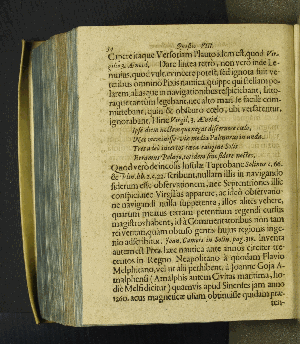 34 Quæstio VIII.
Capere itaque Versoriam Plauto idem est, quod Vir-
gil. 3. Æneid. Dare lintea retro, non verò inde Le-
mnius, quod vult, vincere potest, sed ignota fuit ve-
teribus omnino Pixis nautica, quippe qui stellam po-
larem, aliasque in navigationibus respiciebant, litto-
raque tantùm legebant, nec alto mari se facilè com-
mittebant, quin &, obscuro cœlo, ubi versarentur,
ignorabant. Hinc Virgil. 3. Æneid.
Ipse diem noctemque negat discernere cœlo,
Nec meminisse viæ media Palinurus in unda.
Tres adeò incertos cæca caligine Soles
Erramus Pelago, totidem sine sidere noctes.
Quod verò de incolis Insulæ Taprobanæ Solinus c. 66.
& Plin. lib. 6. c. 22. scribunt, nullam illis in navigando
siderum esse observationem, nec Septentriones illic
conspici,
navigandi nulla suppetente, illos alites vehere,
quarum meatus terram petentium regendi cursus
magistros habent, id à Commentatoribus non tam
rei veritati, quàm obtuso gentis hujus regionis inge-
nio adscribitur. Joan. Camers in Solin. pag. 311. Inventa
autem est Pixis hæc nautica ante annos circiter tre-
centos in Regno Neapolitano à quodam Flavio
Melphitano, vel ut alii perhibent, à Joanne Goja A-
malphensi (Amalphis autem Civitas maritima, ho-
die Melfi dicitur) quamvis apud Sinenses jam anno
1260. acus magneticæ usum obtinuisse quidam præ-
ten-